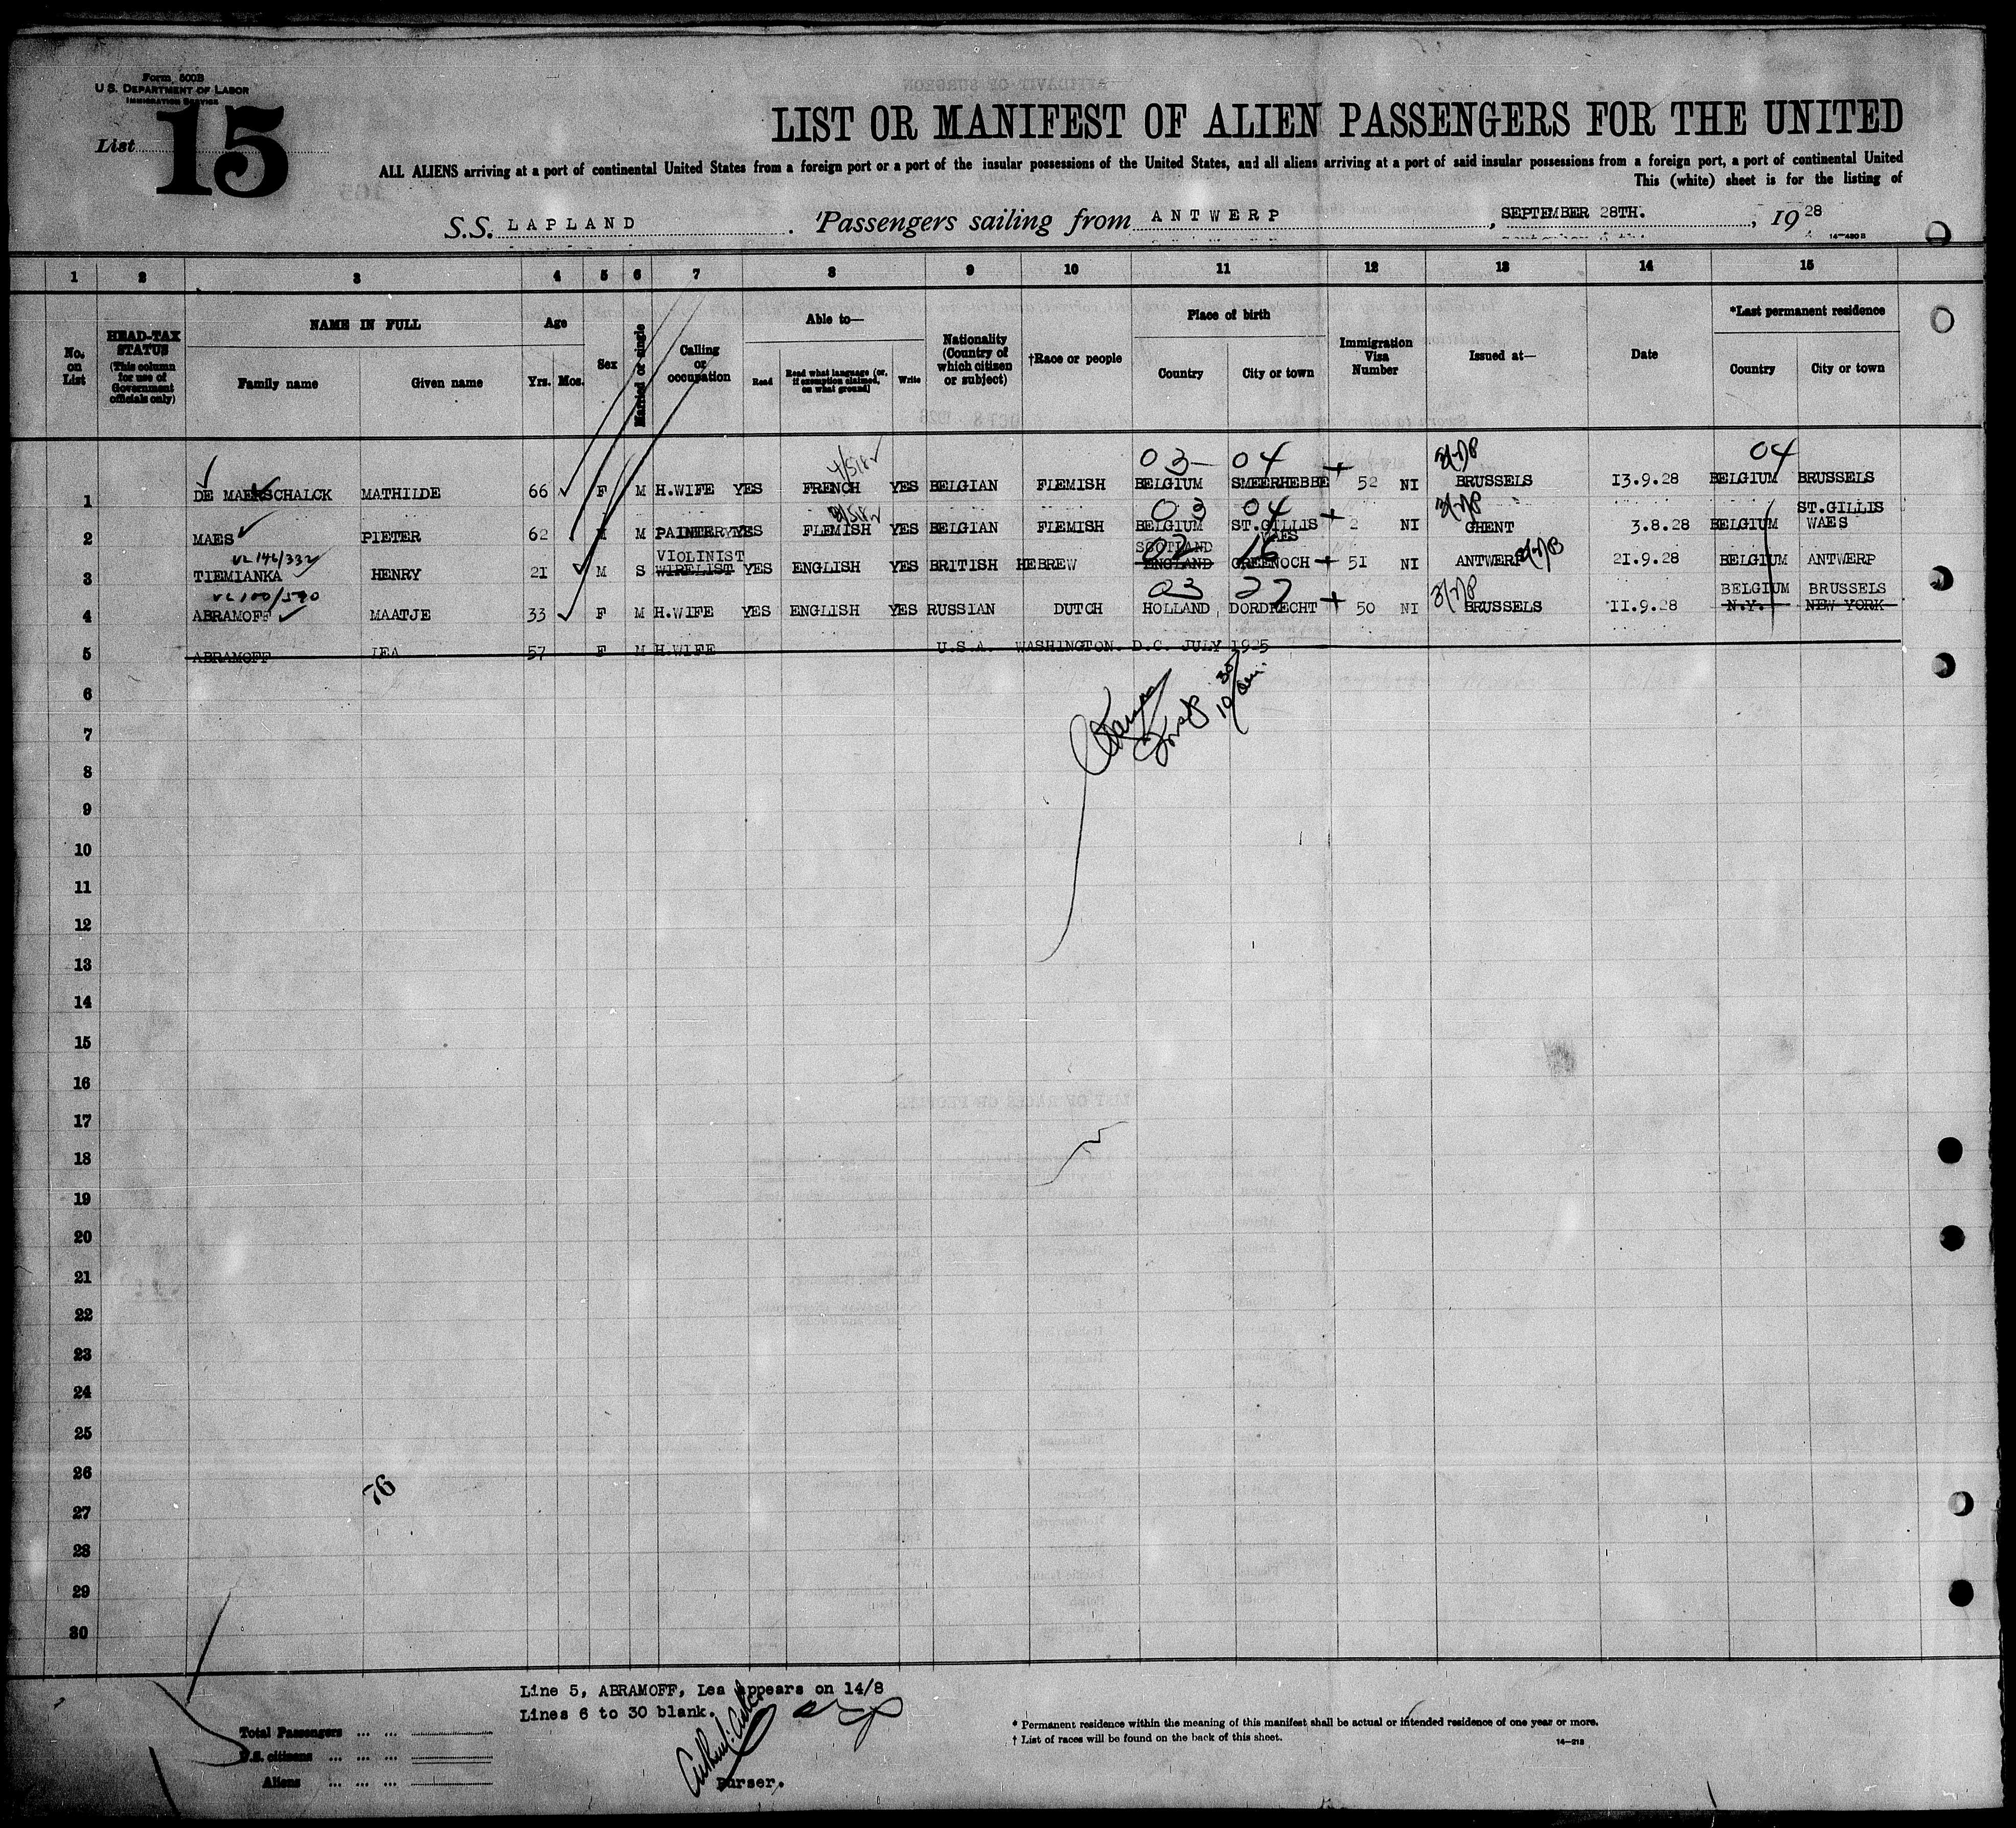 Form 500B
U. S. DEPARTMENT OF LABOR
IMMIGRATION SERVICE
List 15
LIST OR MANIFEST OF ALIEN PASSENGERS FOR THE UNITED
ALL ALIENS arriving at a port of continental United States from a foreign port or a port of the insular possessions of the United States, and all aliens arriving at a port of said insular possessions from a foreign port, a port of continental United
This (white) sheet is for the listing of
S.S. LAPLAND. Passengers sailing from ANTWERP, SEPTEMBER 28TH., 19 28
14-430 B
1 2 3 4 5 6 7 8 9 10 11 12 13 14 15
No. on List
HEAD-TAX STATUS (This column for use of Government officials only)
NAME IN FULL
Family name Given name
Age
Yrs. Mos.
Sex
Married or single
Calling or occupation
Able to—
Read Read what language (or, if exemption claimed, on what ground) Write
Nationality (Country of which citizen or subject)
†Race or people
Place of birth
Country City or town
Immigration Visa Number
Issued at—
Date
*Last permanent residence
Country City or town
03 04 04
1 DE MAERSCHALCK MATHILDE 66 F M H.WIFE YES FRENCH YES BELGIAN FLEMISH BELGIUM SMEERHEBBE 52 NI BRUSSELS 13.9.28 BELGIUM BRUSSELS
03 04 ST.GILLIS
2 MAES PIETER 62 M M PAINTER YES FLEMISH YES BELGIAN FLEMISH BELGIUM ST.GILLIS WAES 2 NI GHENT 3.8.28 BELGIUM WAES
VL 146/332 VIOLINIST SCOTLAND 02 16
3 TIEMIANKA HENRY 21 M S WIRELIST YES ENGLISH YES BRITISH HEBREW ENGLAND GREENOCH 51 NI ANTWERP 21.9.28 BELGIUM ANTWERP
03 27 BELGIUM BRUSSELS
4 ABRAMOFF MAATJE 33 F M H.WIFE YES ENGLISH YES RUSSIAN DUTCH HOLLAND DORDRECHT 50 NI BRUSSELS 11.9.28 N.Y. NEW YORK
5 ABRAMOFF LEA 57 F M H.WIFE U.S.A. WASHINGTON. D.C. JULY 1925
6
7
8
9
10
11
12
13
14
15
16
17
18
19
20
21
22
23
24
25
26
76
27
28
29
30
Line 5, ABRAMOFF, Lea appears on 14/8
Lines 6 to 30 blank.
Purser.
Total Passengers
U.S. citizens
Aliens
* Permanent residence within the meaning of this manifest shall be actual or intended residence of one year or more.
† List of races will be found on the back of this sheet.
14-213